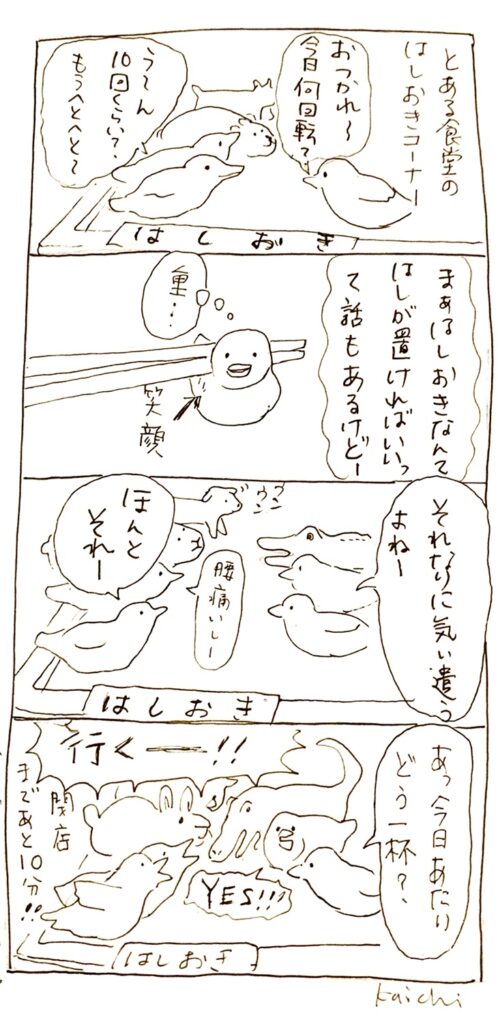 とある食堂の
はしおきコーナー
おつかれ〜
今日何回転?
う〜ん
10回くらい?
もうへとへと〜
はしおき
まぁはしおきなんて
はしが置ければいいっ
て話もあるけどー
重…
笑顔
それなりに気い遣う
よねー
ウンウン
ほんと
それー
腰痛いしー
はしおき
あっ今日あたり
どう一杯?
行くー!!
YES!!!
閉店
まであと10分!!
はしおき
Kaichi